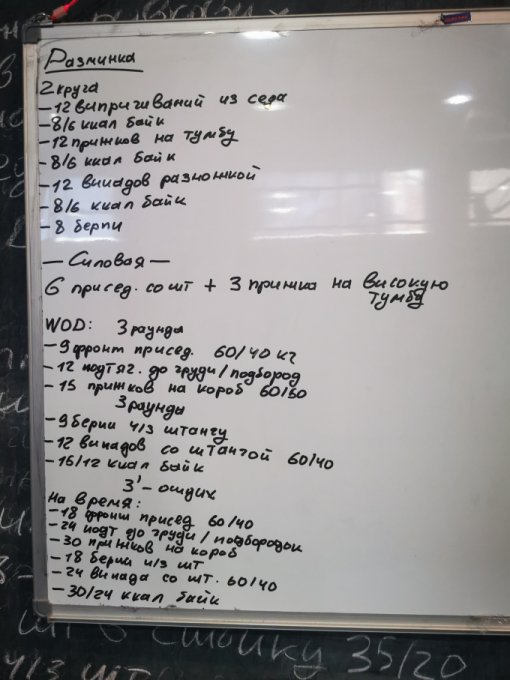 Разминка
2 круга
- 12 випригиваний из седа
- 8/6 ккал байк
- 12 прижков на тумбу
- 8/6 ккал байк
- 12 випадов разножкой
- 8/6 ккал байк
- 8 берпи
— Силовая —
6 присед. со шт + 3 прижка на високую
тумбу
WOD: 3 раунды
- 9 фронт присед. 60/40 кг
- 12 подтяг. до груди/подбород
- 15 прижков на короб 60/50
3 раунды
- 9 берпи ч/з штангу
- 12 випадов со штангой 60/40
- 16/12 ккал байк
3' - отдих
На время:
- 18 фронт присед 60/40
- 24 подт до груди/подбородок
- 30 прижков на короб
- 18 берпи ч/з шт
- 24 випада со шт. 60/40
- 30/24 ккал байк
шт в стойку 35/20
ч/з шт